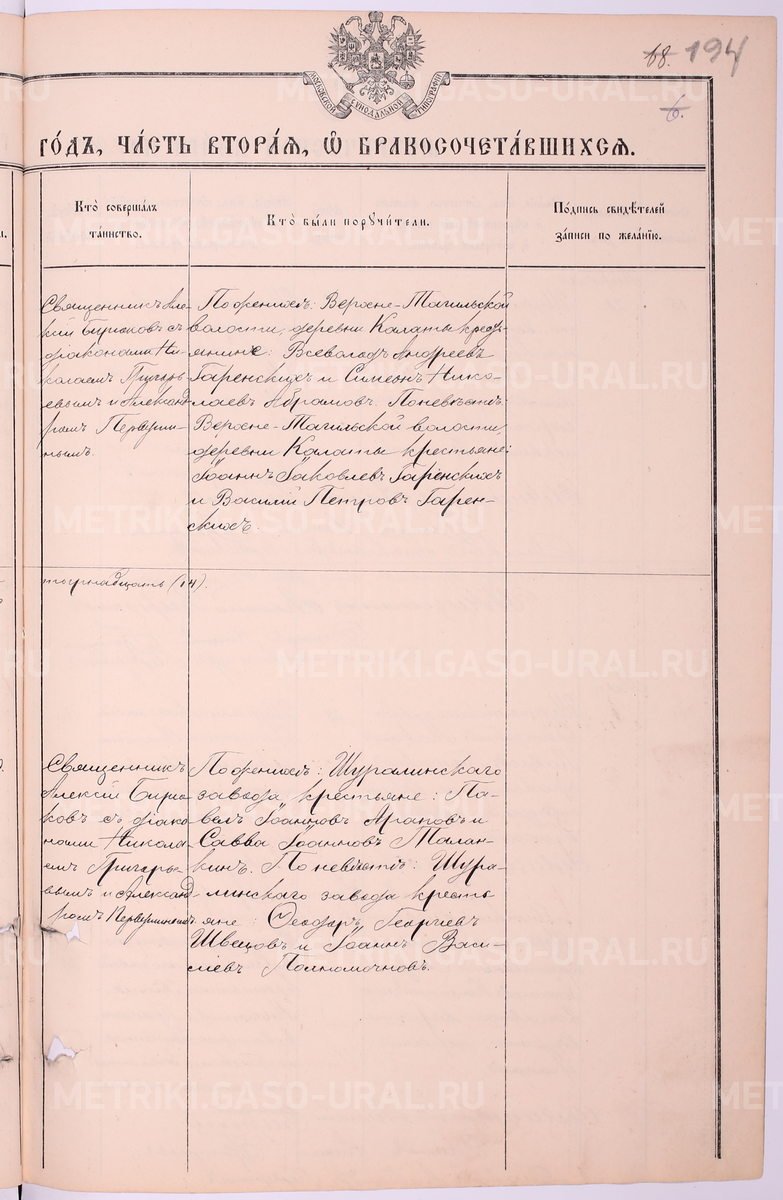 68. 194
6.
МОСКОВСКОЙ СѴНОДАЛЬНОЙ ТИПОГРАФІИ
ГО́ДЪ, ЧА́СТЬ ВТОРА́Я, Ѽ БРАКОСОЧЕТА́ВШИХСЯ.
Кто̀ соверша́лъ
та́инство.
Кто̀ бы́ли порꙋчи́тели.
По́дпись свидѣ́телей
за́писи по жела́нїю.
Священникъ Але-
ксій Бирюковъ съ
діаконами Ни-
колаемъ Григорь-
евымъ и Александ-
ромъ Первуши-
нымъ.
По женихѣ: Верхне-Тагильской
волости, деревни Калаты кресть-
янине: Всеволодъ Андреевъ
Гаренскихъ и Симеонъ Нико-
лаевъ Абрамовъ. По невѣстѣ:
Верхне-Тагильской волости,
деревни Калаты крестьяне:
Іоаннъ Іаковлевъ Гаренскихъ
и Василій Петровъ Гарен-
скихъ.
тырнадцать (14).
Священникъ
Алексій Бирю-
ковъ съ діако-
нами Никола-
емъ Григорье-
вымъ и Александ-
ромъ Первушинымъ
По женихѣ: Шуралинскаго
завода крестьяне: Па-
велъ Іоанновъ Араповъ и
Савва Іоанновъ Талан-
кинъ. По невѣстѣ: Шура-
линскаго завода кресть
яне: Ѳеодоръ Георгіевъ
Швецовъ и Іоаннъ Васи-
ліевъ Полномочновъ.
METRIKI.GASO-URAL.RU